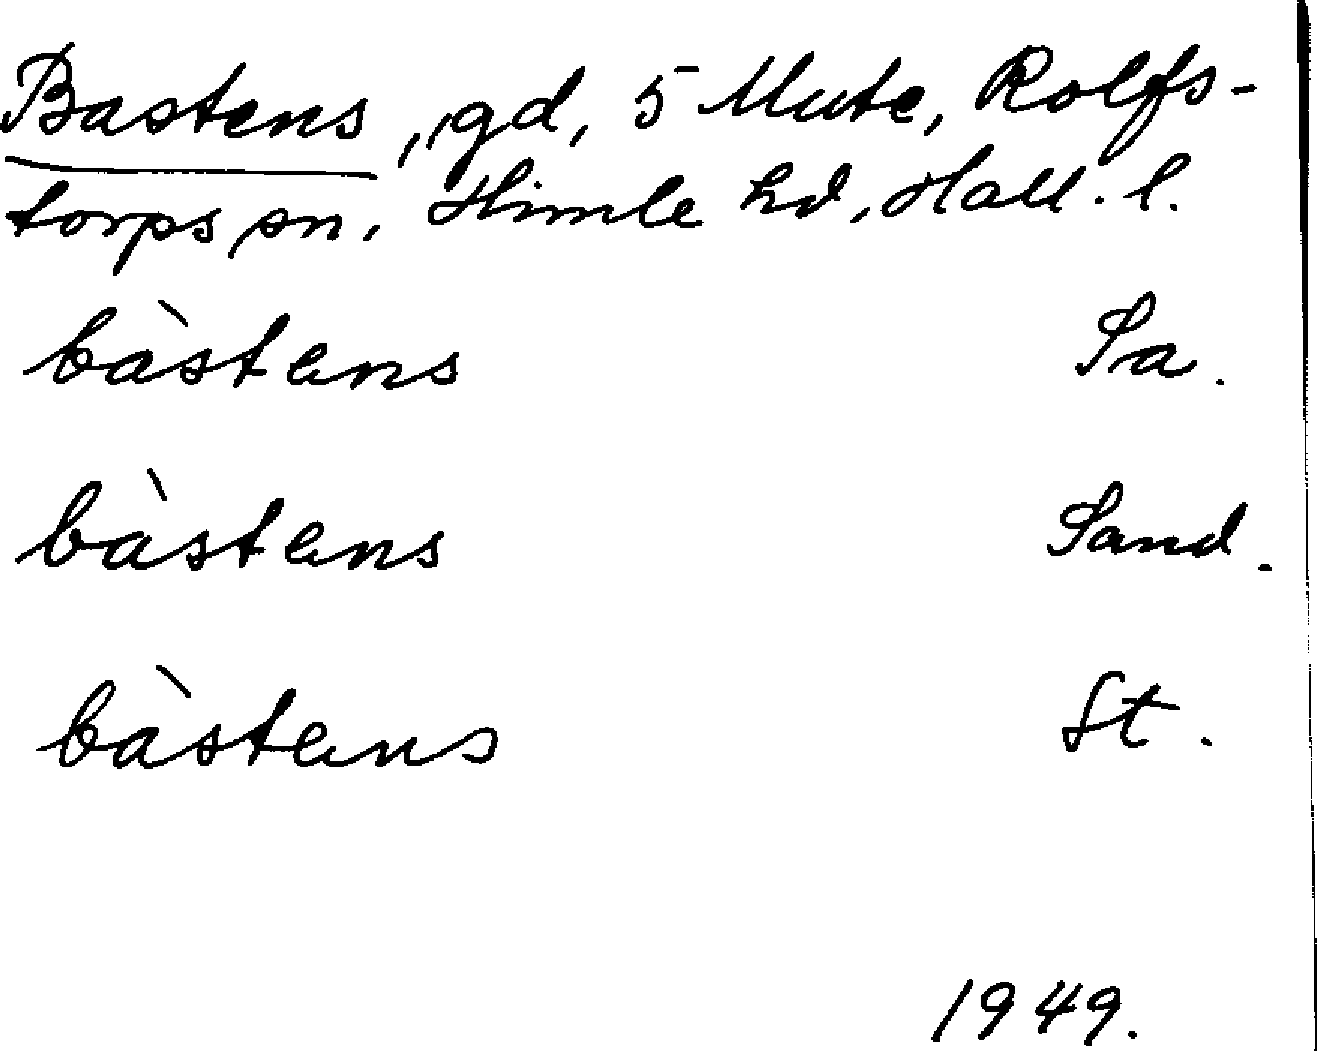 Bastens, gd, 5 Mute, Rolfs-
torps sn, Himle hd, Hall. l.
bàstens Sa.
bàstens Sand.
bàstens St.
1949.